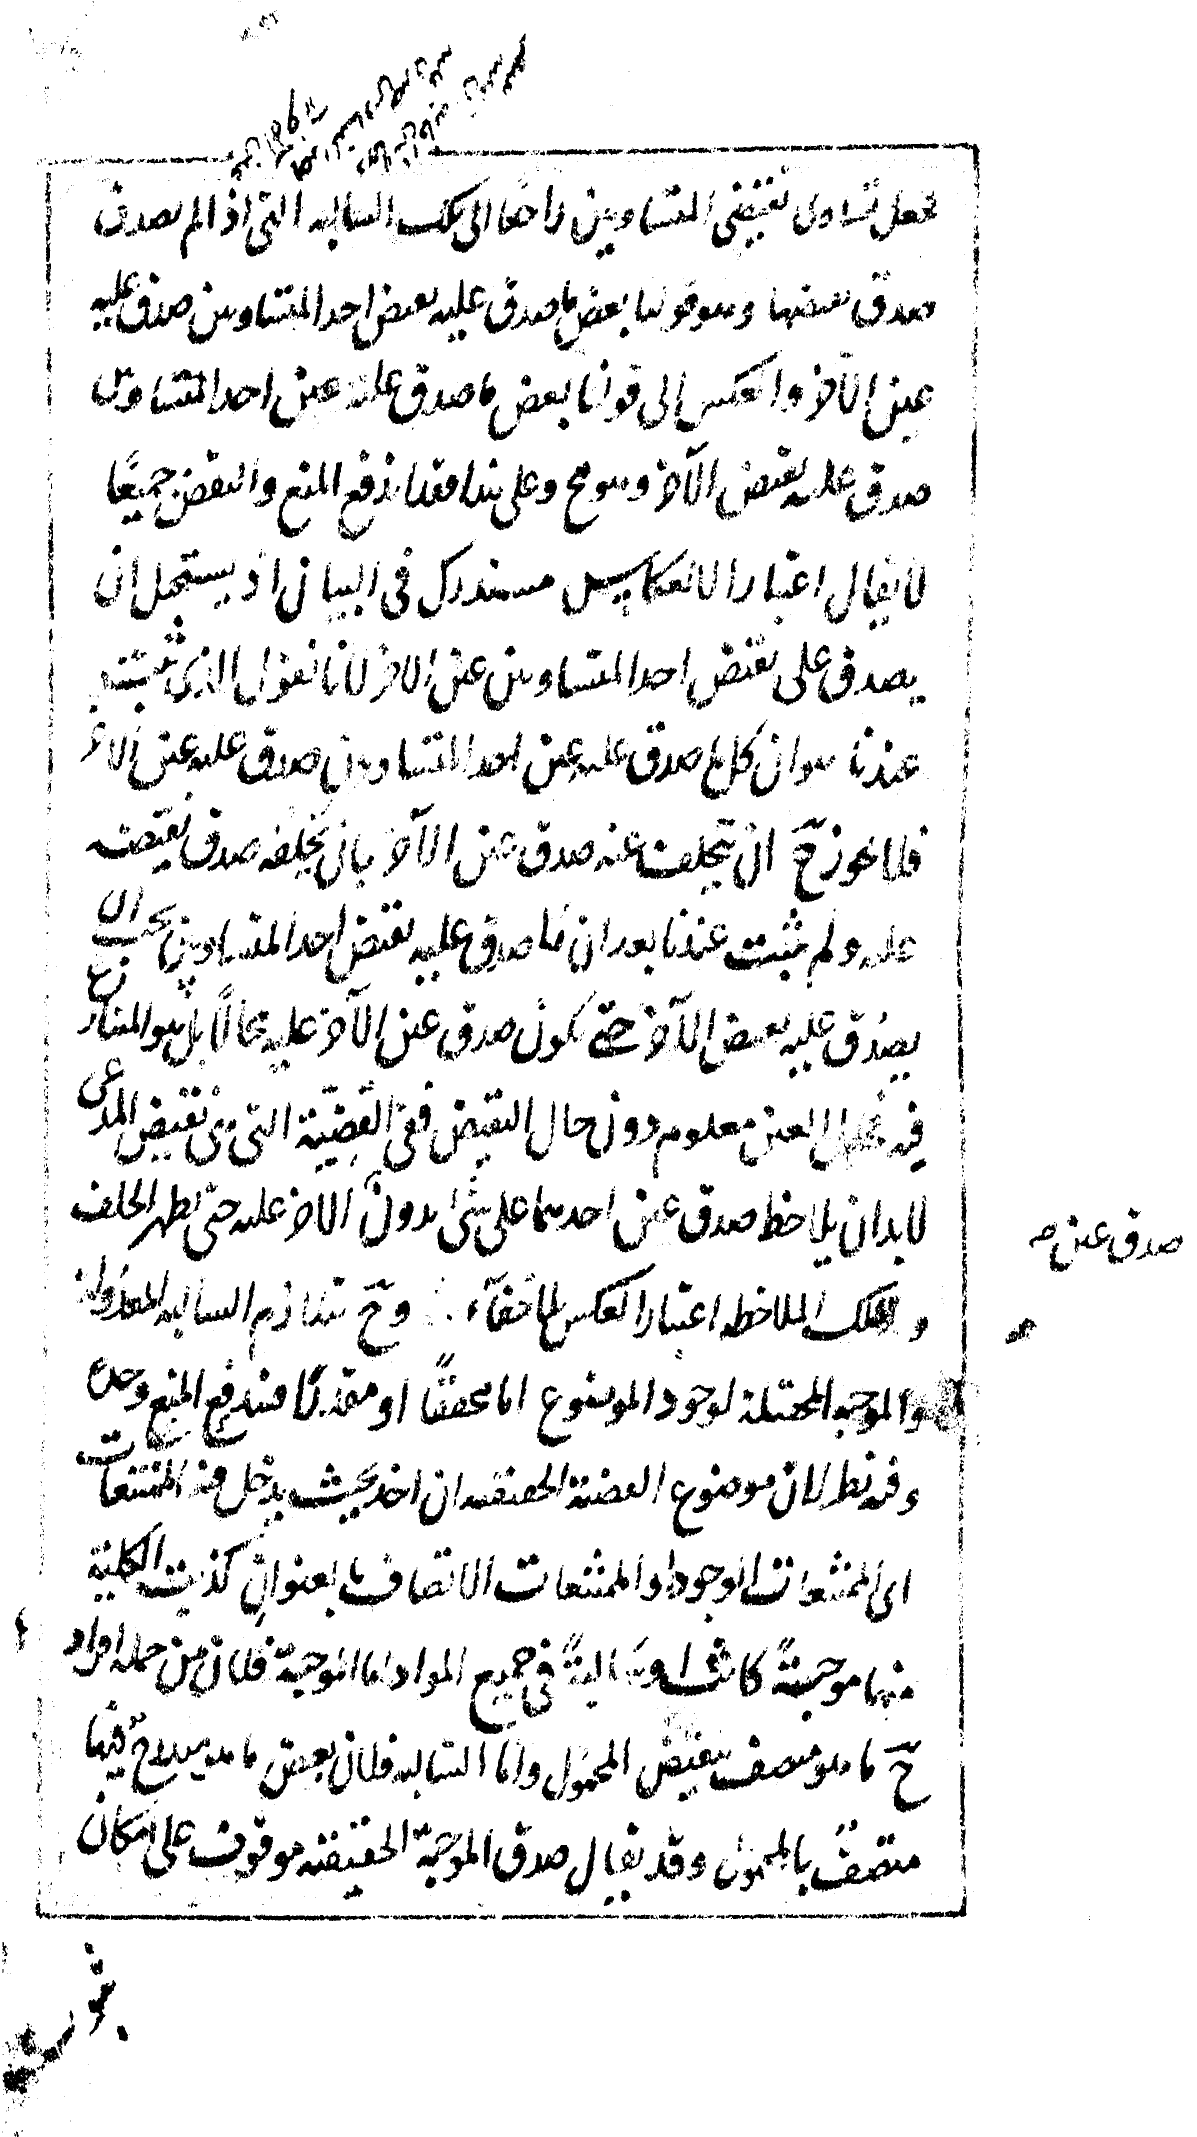 فجعل تساوى نقيضى المتساويين راجعا الى تلك السالبه التى اذا لم يصدق
صدق نقيضها وهو قولنا بعض ما صدق عليه نقيض احد المتساويين صدق عليه
عين الآخر وانعكس الى قولنا بعض ما صدق عليه عين احد المتساويين
صدق عليه نقيض الآخر وهو مح وعلى هذا فقد اندفع المنع والنقض جميعًا
لا يقال اعتبار الانعكاس مستدرك فى البيان اذ يستحيل ان
يصدق على نقيض احد المتساويين عين الاخر لانا نقول الذى ثبت
عندنا هو ان كل ما صدق عليه عين احد المتساويين صدق عليه عين الاخر
فلا يجوز ح ان يتخلف عنه صدق عين الآخر بان يخلفه صدق نقيضه
عليه ولم يثبت عندنا بعد ان ما صدق عليه نقيض احد المتساويين يجب ان
يصدق عليه نقيض الآخر حتى يكون صدق عين الآخر عليه محالاً بل هو المتنازع
فيه فحال العين معلوم دون حال النقيض ففى القضيّة التى هى نقيض المدعى
لابد ان يلاحظ صدق عين احدهما على شئ بدون الاخر عليه حتى يظهر الخلف
صدق عين صه
و تلك الملاحظه اعتبار العكس لا خفآء وح تتلازم السالبه المعدولة
والموجبه المحتملة لوجود الموضوع اما محققًا او مقدرًا فيندفع المنع وحده
وفيه نظر لان موضوع القضية الحقيقيه ان اخذ بحيث يدخل فيه الممتنعات
اى الممتنعات الوجود او الممتنعات الاتصاف بالعنوان كذبت الكلية
منها موجبةً كانت او سالبةً فى جميع المواد اما الموجبة فلان من جمله افراد
ح ما هو متصف بنقيض المحمول واما السالبه فلان بعض ما هو ح فيها
متصف بالمحمول وقد يقال صدق الموجبة الحقيقيه موقوف على امكان